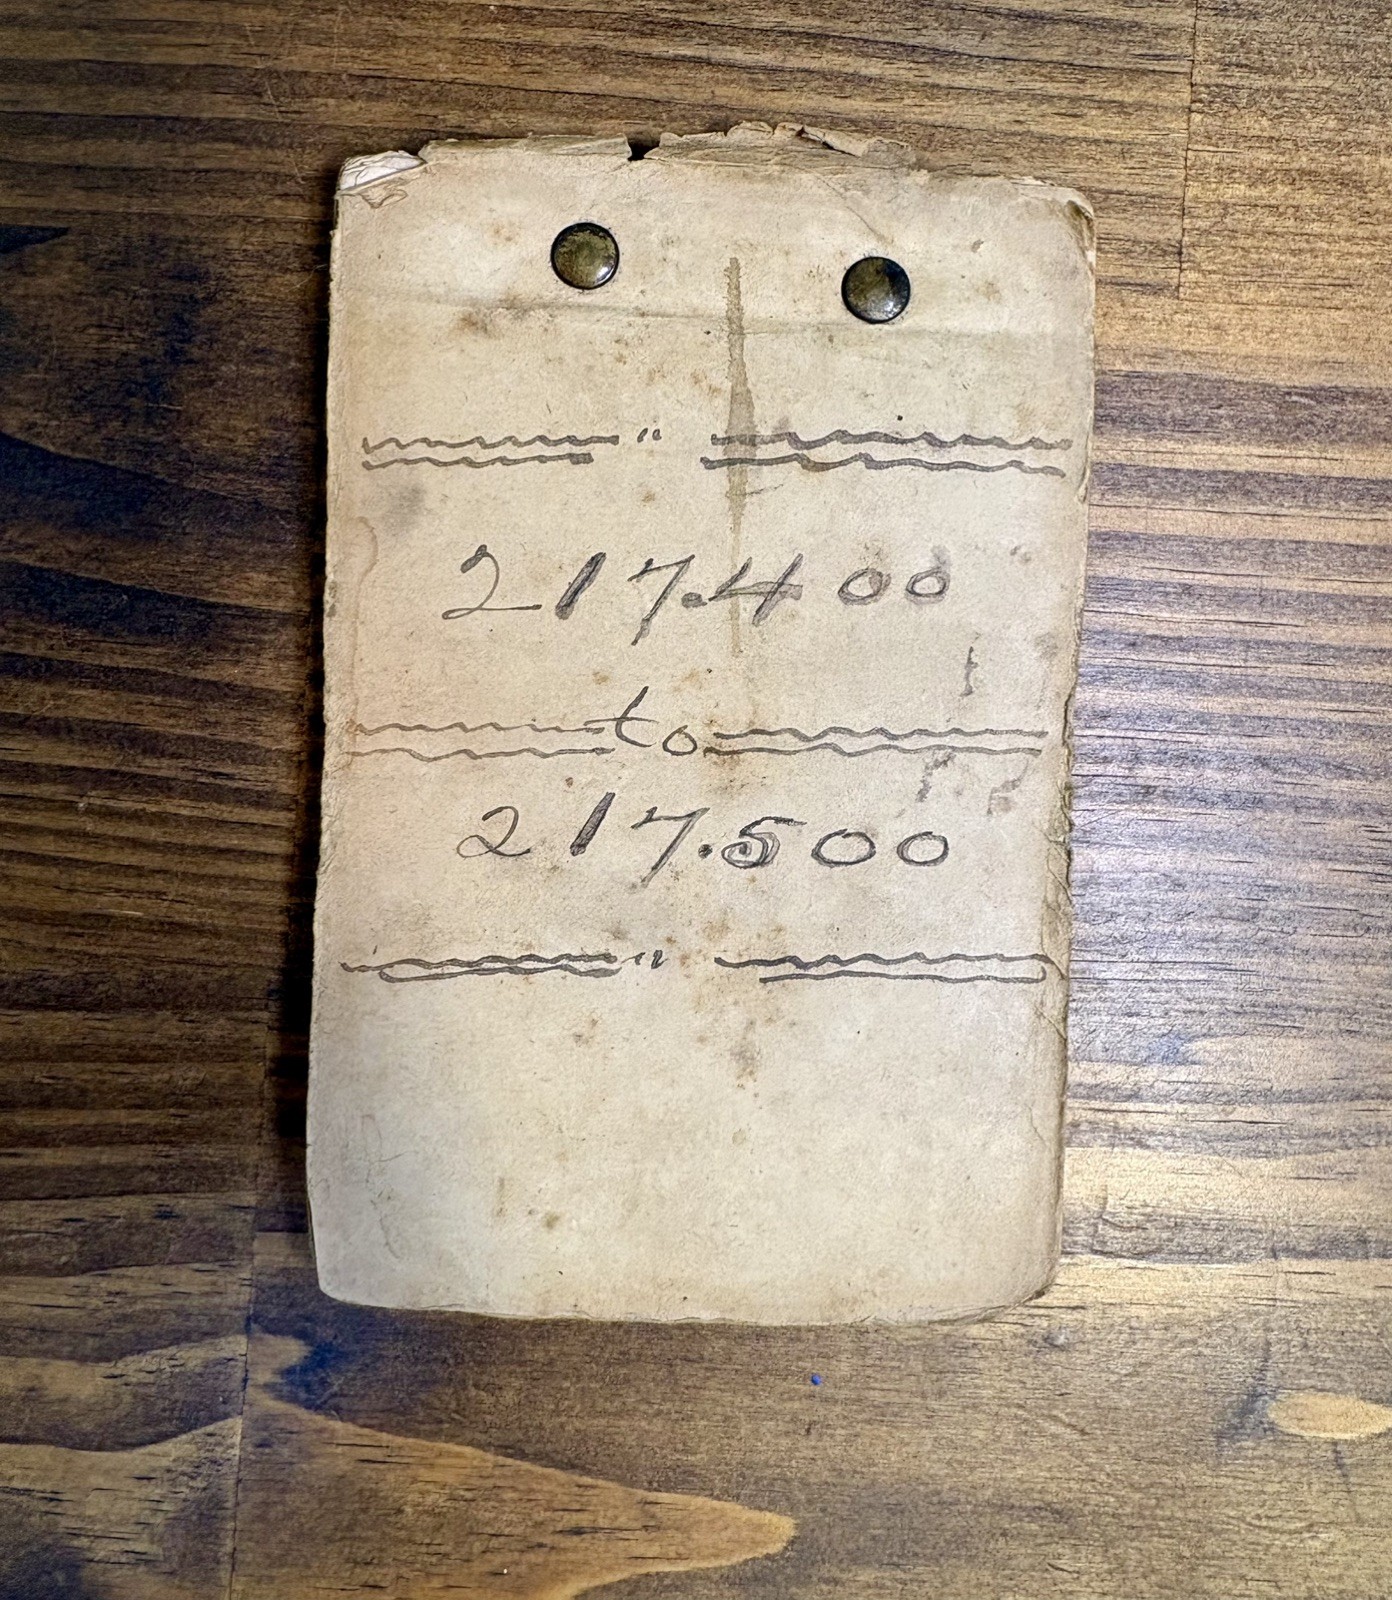 "
217.400
to
217.500
"